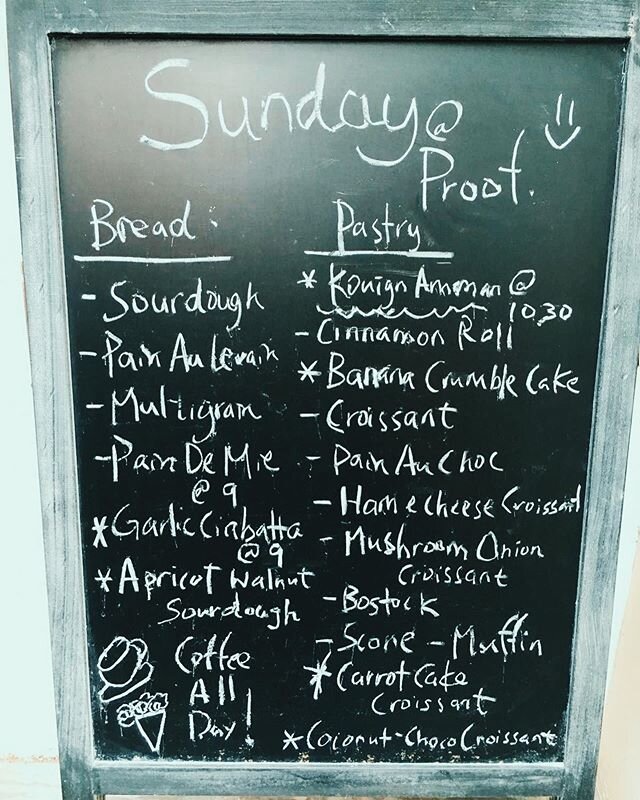 Sunday @
Proof.
Bread.
- Sourdough
- Pain Au Levain
- Multigrain
- Pain De Mie
@ 9
* Garlic Ciabatta
@ 9
* Apricot Walnut
Sourdough
Coffee
All
Day!
Pastry
* Kouign Amman @
10.30
- Cinnamon Roll
* Banana Crumble Cake
- Croissant
- Pain Au Choc
- Ham & Cheese Croissant
- Mushroom Onion
Croissant
- Bostock
- Scone - Muffin
* Carrot Cake
Croissant
* Coconut-Choco Croissant